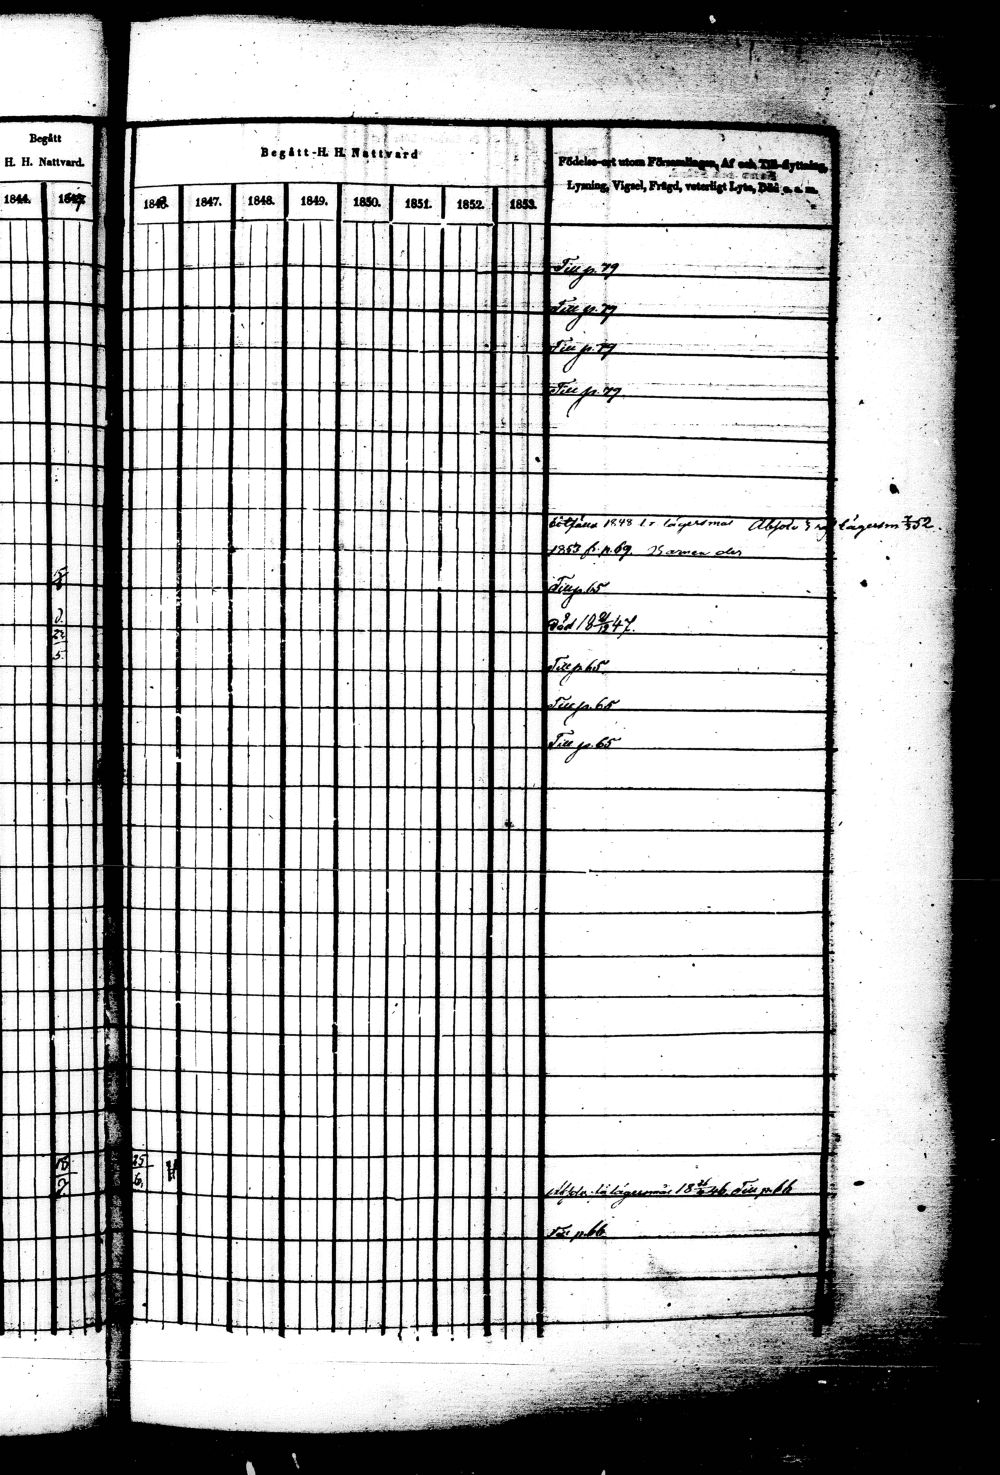 Begått
H. H. Nattvard.
1844.
Begått H. H. Nattvard
1847. 1848. 1849. 1850. 1851. 1852. 1853.
Födelse-ort utom Församlingen, Af och Till-flyttning,
Lysning, Vigsel, Frägd, veterligt Lyte, Död o. s. m.
Till p. 79
Till p. 79
Till p. 79
Till p. 79
1848 lägersmål Absolv lägersm 52.
1853 p. 69.
Till p. 65
Död 18 21/12 47.
22
5
Till p. 65
Till p. 65
Till p. 65
25
6.
lägersmål 18 46. Till p. 66
Till p. 66